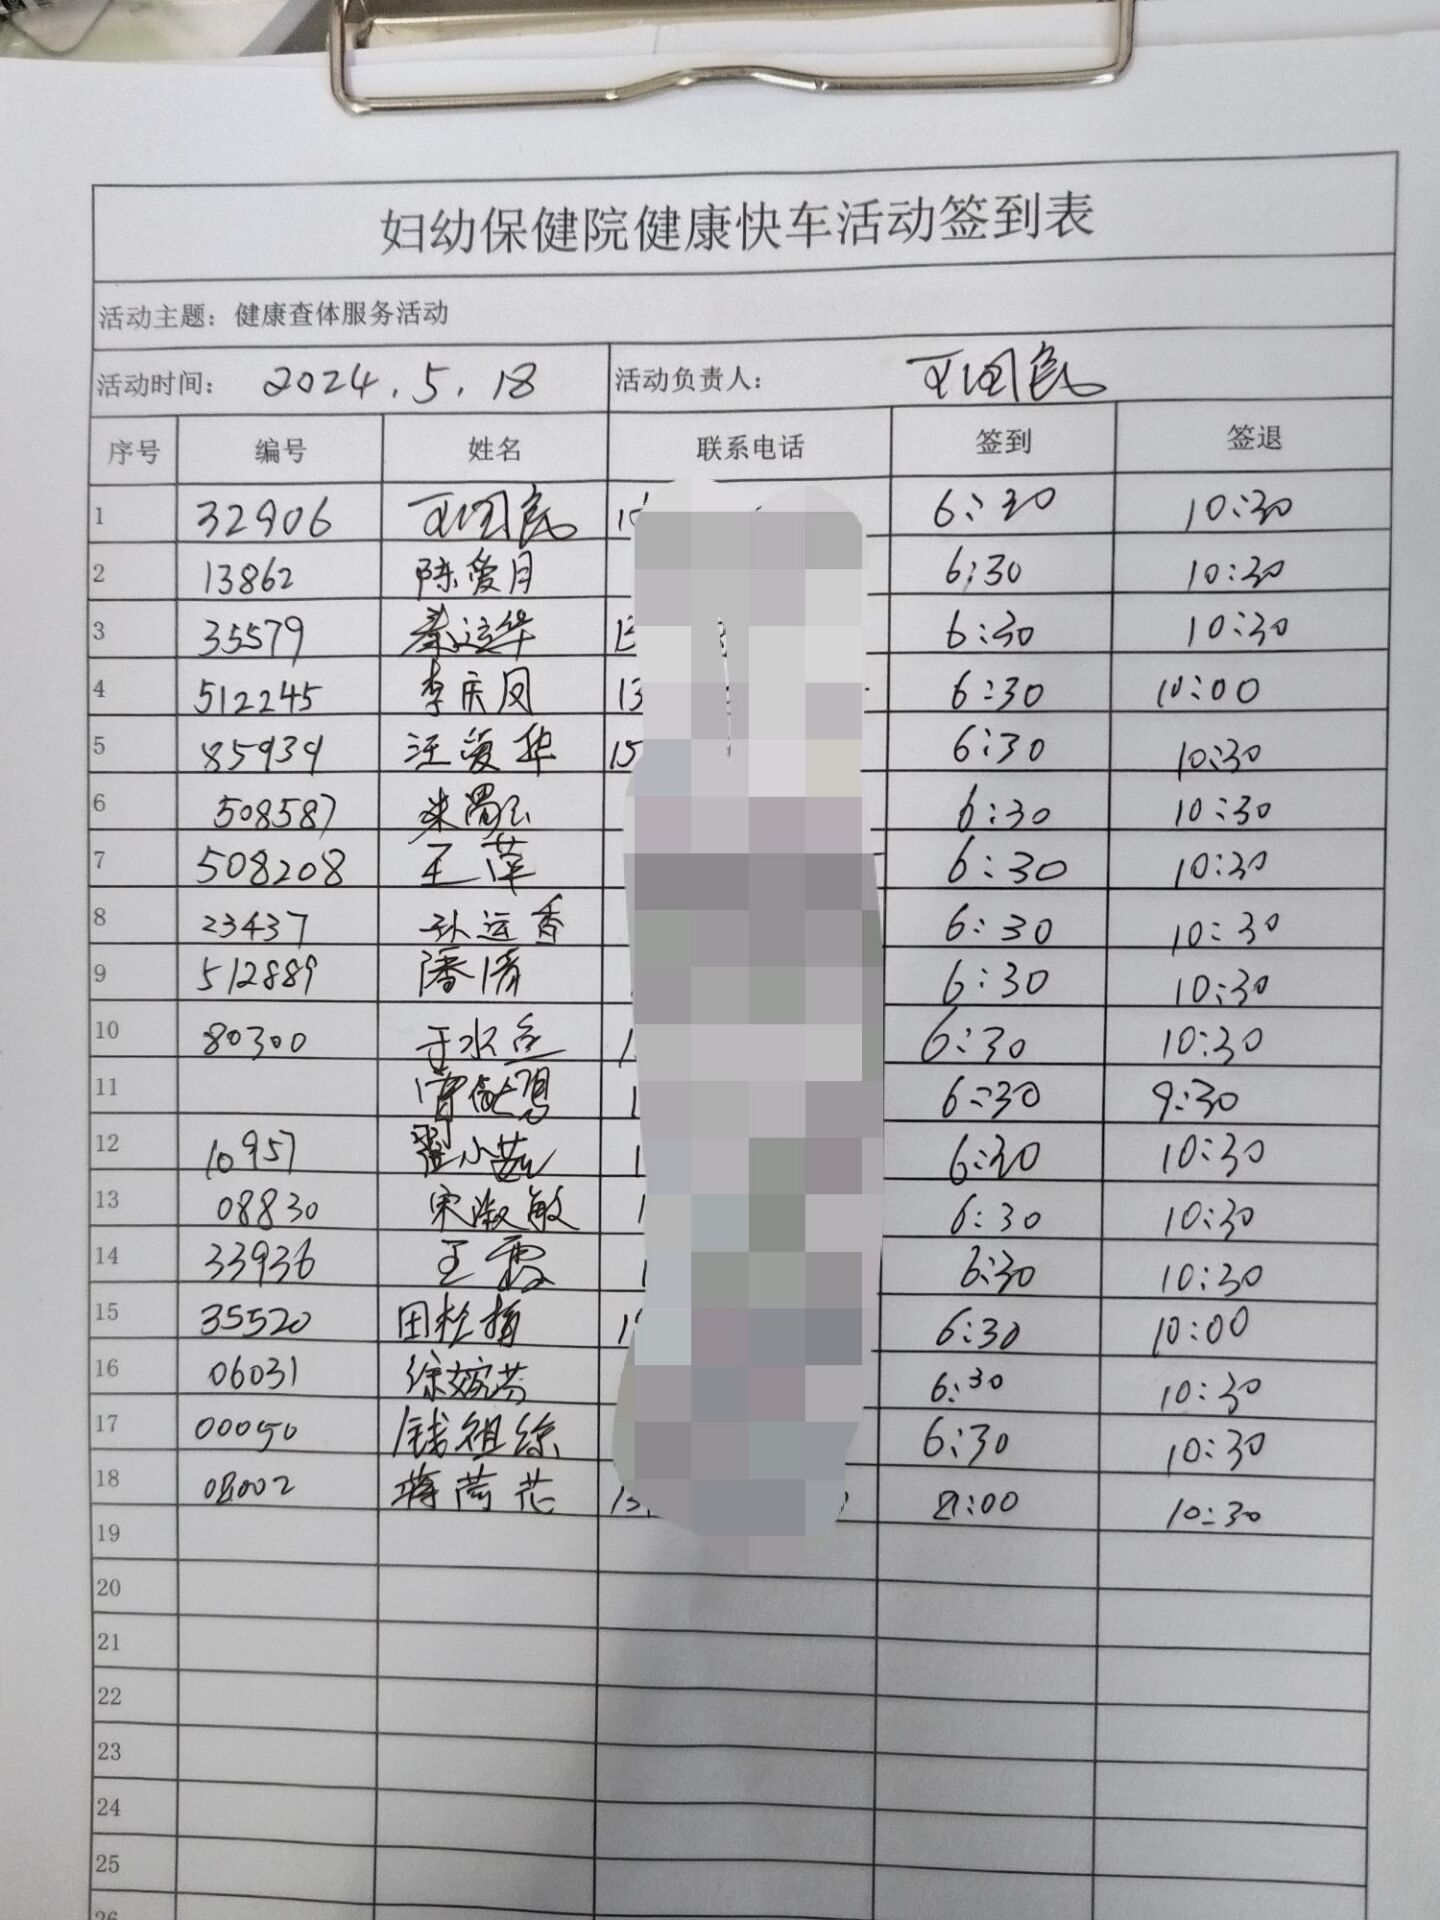 妇幼保健院健康快车活动签到表
活动主题：健康查体服务活动
活动时间： 2024.5.18 活动负责人： 王国民
序号 编号 姓名 联系电话 签到 签退
1 32906 王国民 6:30 10:30
2 13862 陈爱月 6:30 10:30
3 35579 秦运华 13 6:30 10:30
4 512245 李庆凤 13 6:30 10:00
5 85939 汪爱华 15 6:30 10:30
6 508587 6:30 10:30
7 508208 王萍 6:30 10:30
8 23437 孙运香 6:30 10:30
9 512889 潘清 6:30 10:30
10 80300 于水 6:30 10:30
11 6:30 9:30
12 10957 翟小茹 6:30 10:30
13 08830 宋淑敏 6:30 10:30
14 33936 王霞 6:30 10:30
15 35520 田 6:30 10:00
16 06031 徐婉芬 6:30 10:30
17 00050 钱祖综 6:30 10:30
18 08002 蒋荷花 13 8:00 10:30
19
20
21
22
23
24
25
26